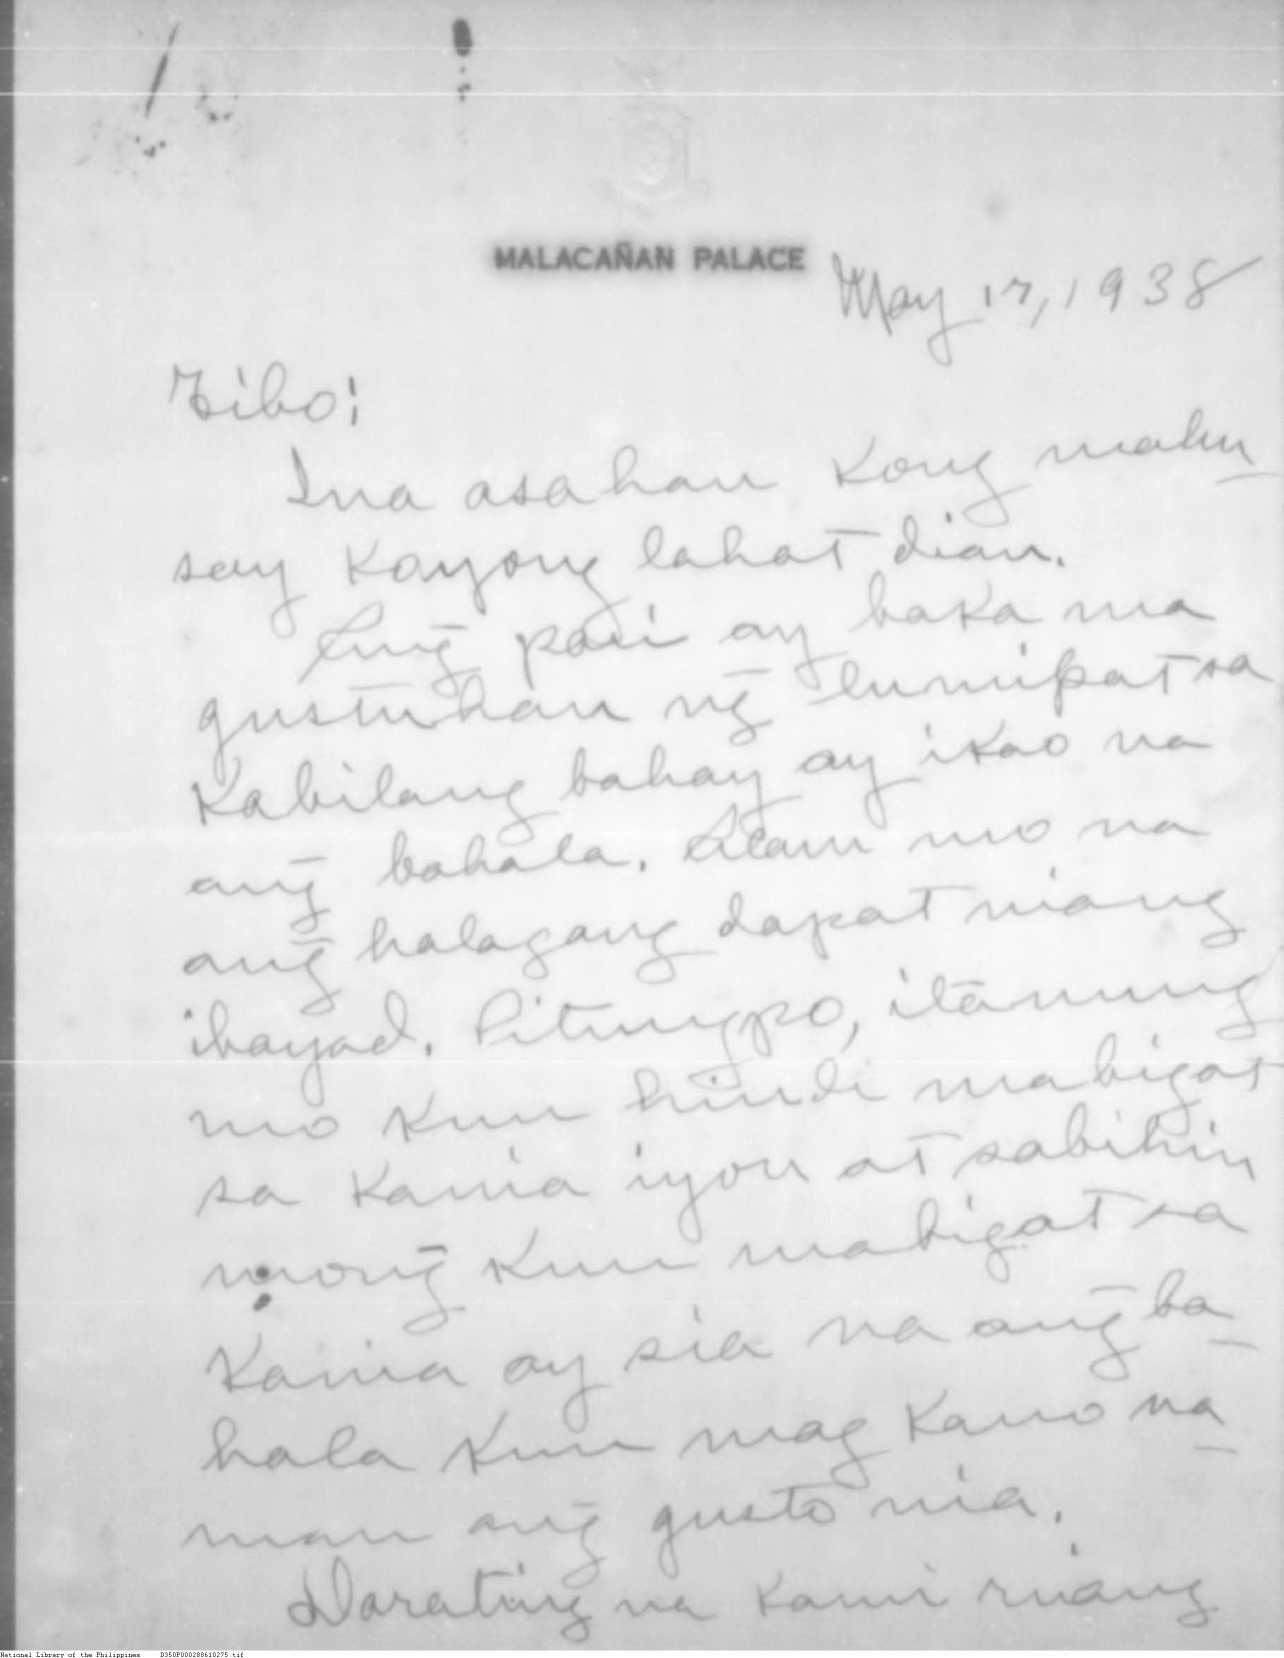 MALACAÑAN PALACE
May 17, 1938
Tibo:
Ina asahan Kong mahu
say Kayong lahat dian.
Ang pari ay baka ma
gustuhan ng lumipat sa
Kabilang bahay ay ikao na
ang bahala. Alam mo na
ang halagang dapat niang
ibayad. Pitungpo, itanung
mo Kun hindi mabigat
sa Kania iyon at sabihin
mong Kun mabigat sa
Kania ay sia na ang ba
hala Kun mag Kano na
man ang gusto nia.
Darating na Kami riang
National Library of the Philippines D350P000288610275.tif